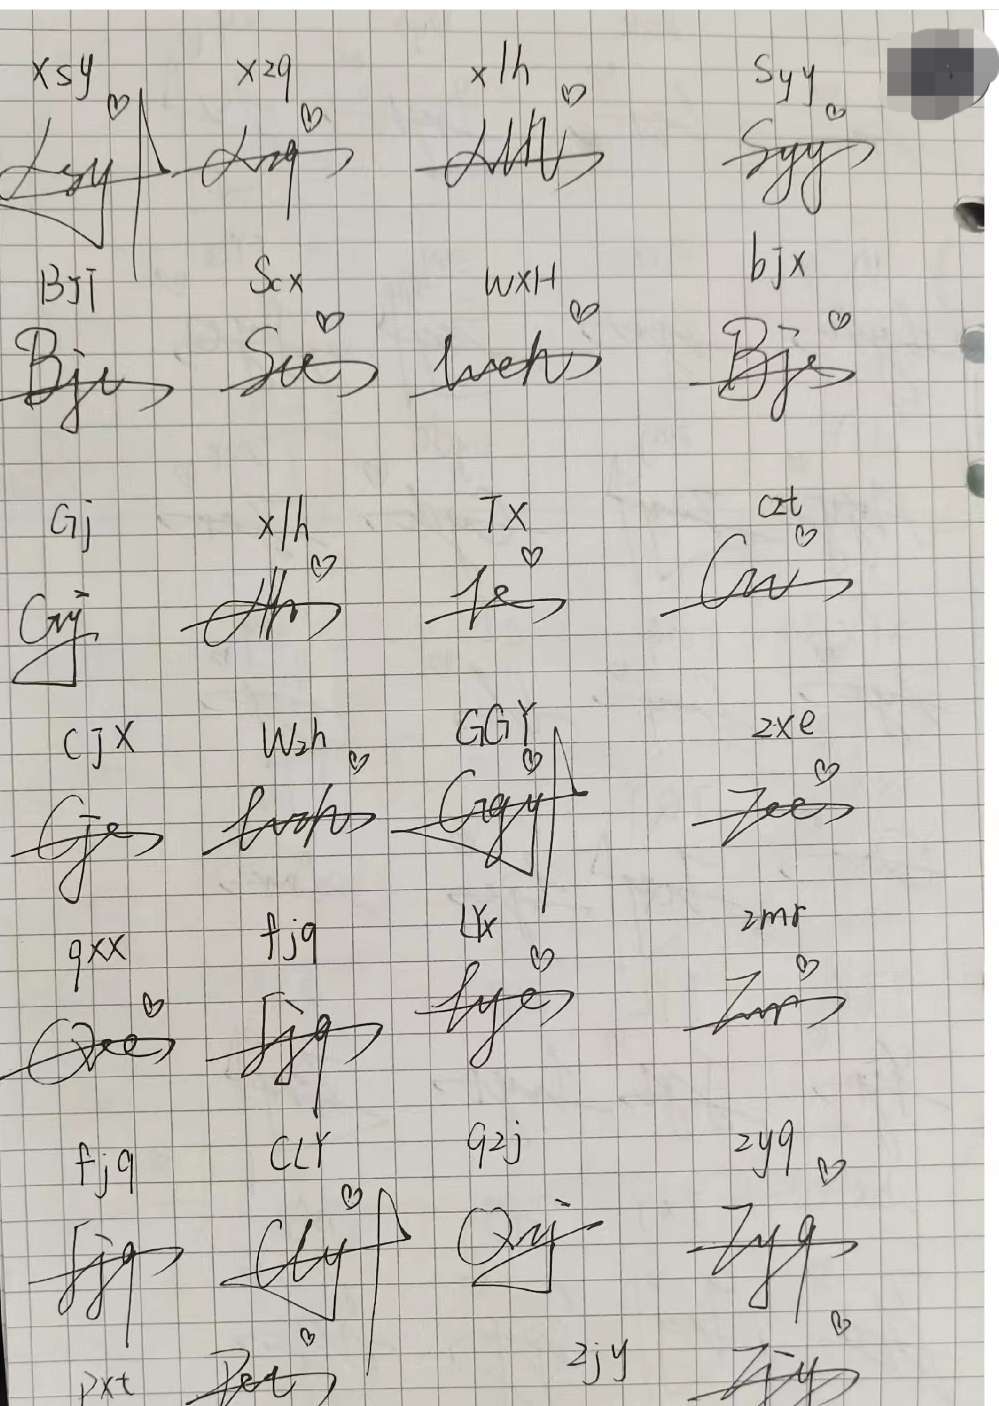 xsy xzq xlh syy
Xsy Xzq Xlh Syy
BJT Scx WXH bjx
Bjx Scx Wxh Bjx
Gj xlh TX czt
Gj Xlh Tx Czt
CJX Wzh GGY zxe
Cjx Wzh Ggy Zxe
qxx fjq LYx zmr
Qxx Fjq Lyx Zmr
fjq CLY qzj zyq
Fjq Cly Qzj Zyq
pxt Pxt zjy Zjy